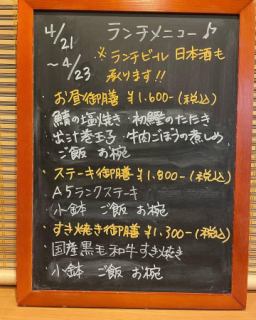 4/21
~4/23
ランチメニュー♪
※ランチビール 日本酒も
承ります!!
・お昼御膳 ¥1.600-(税込)
鰆の塩焼き・初鰹のたたき
出汁巻玉子・牛肉ごぼうの煮しめ
ご飯 お椀
・ステーキ御膳 ¥1.800-(税込)
A5ランクステーキ
小鉢 ご飯 お椀
・すき焼き御膳 ¥1.300-(税込)
国産黒毛和牛すき焼き
小鉢 ご飯 お椀